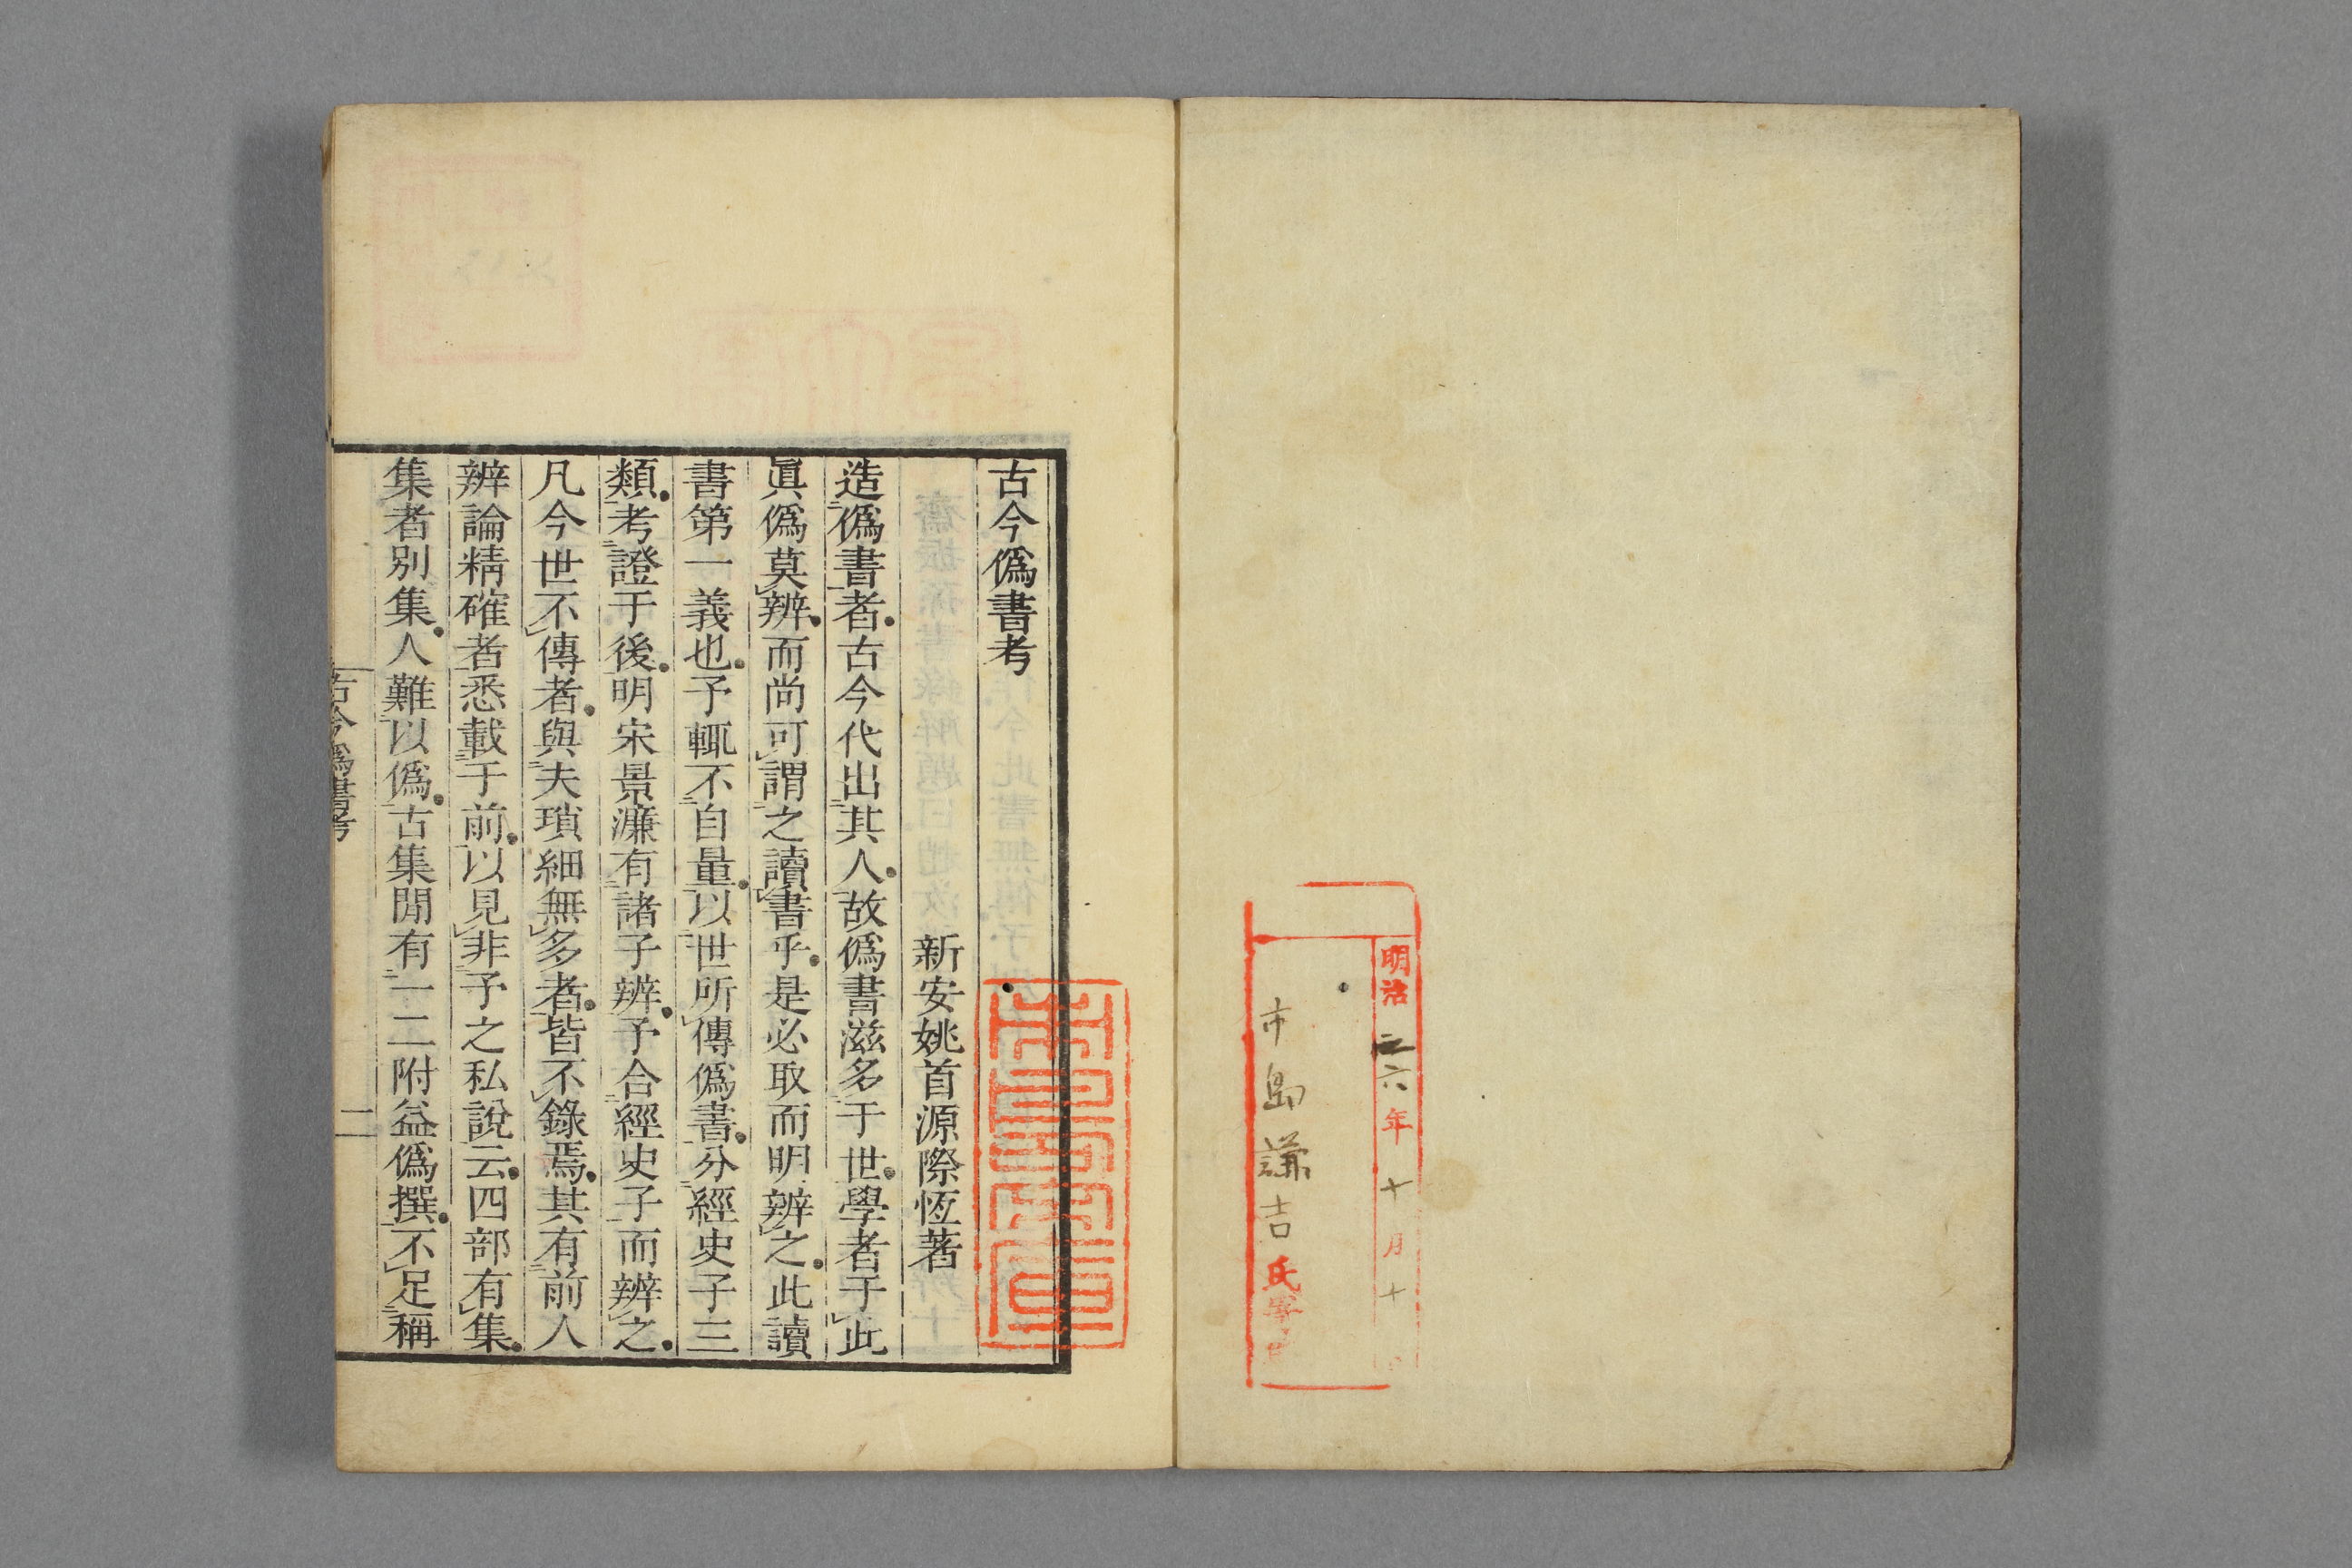 明治三六年十月十
市島謙吉氏寄
古今僞書考
新安姚首源際恆著
造僞書者古今代出其人故僞書滋多于世學者于此
眞僞莫辨而尚可謂之讀書乎是必取而明辨之此讀
書第一義也予輒不自量以世所傳僞書分經史子三
類考證于後明宋景濂有諸子辨予合經史子而辨之
凡今世不傳者與夫瑣細無多者皆不錄焉其有前人
辨論精確者悉載于前以見非予之私說云四部有集
集者別集人難以僞古集閒有一二附益僞撰不足稱
古今僞書考